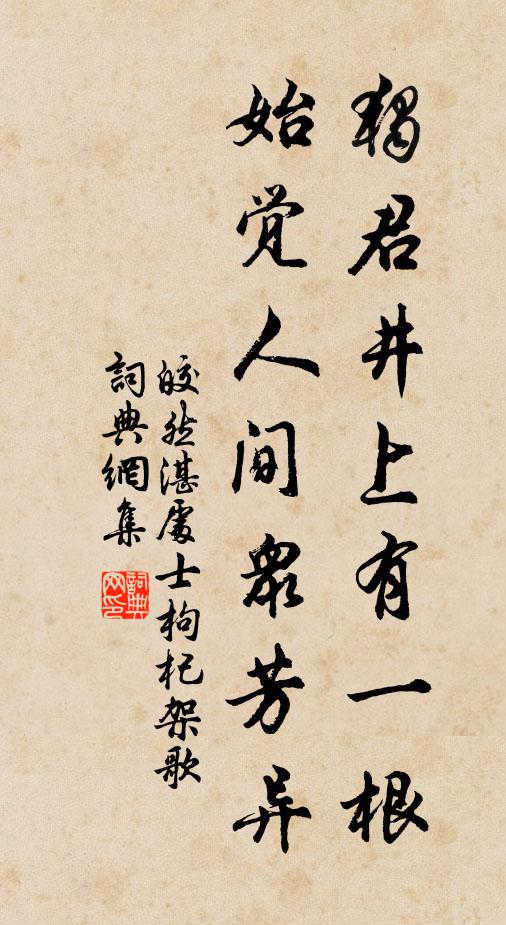 獨君井上有一根
始觉人间衆芳异
皎然湛處士枸杞架歌
詞典網集
詞典网印